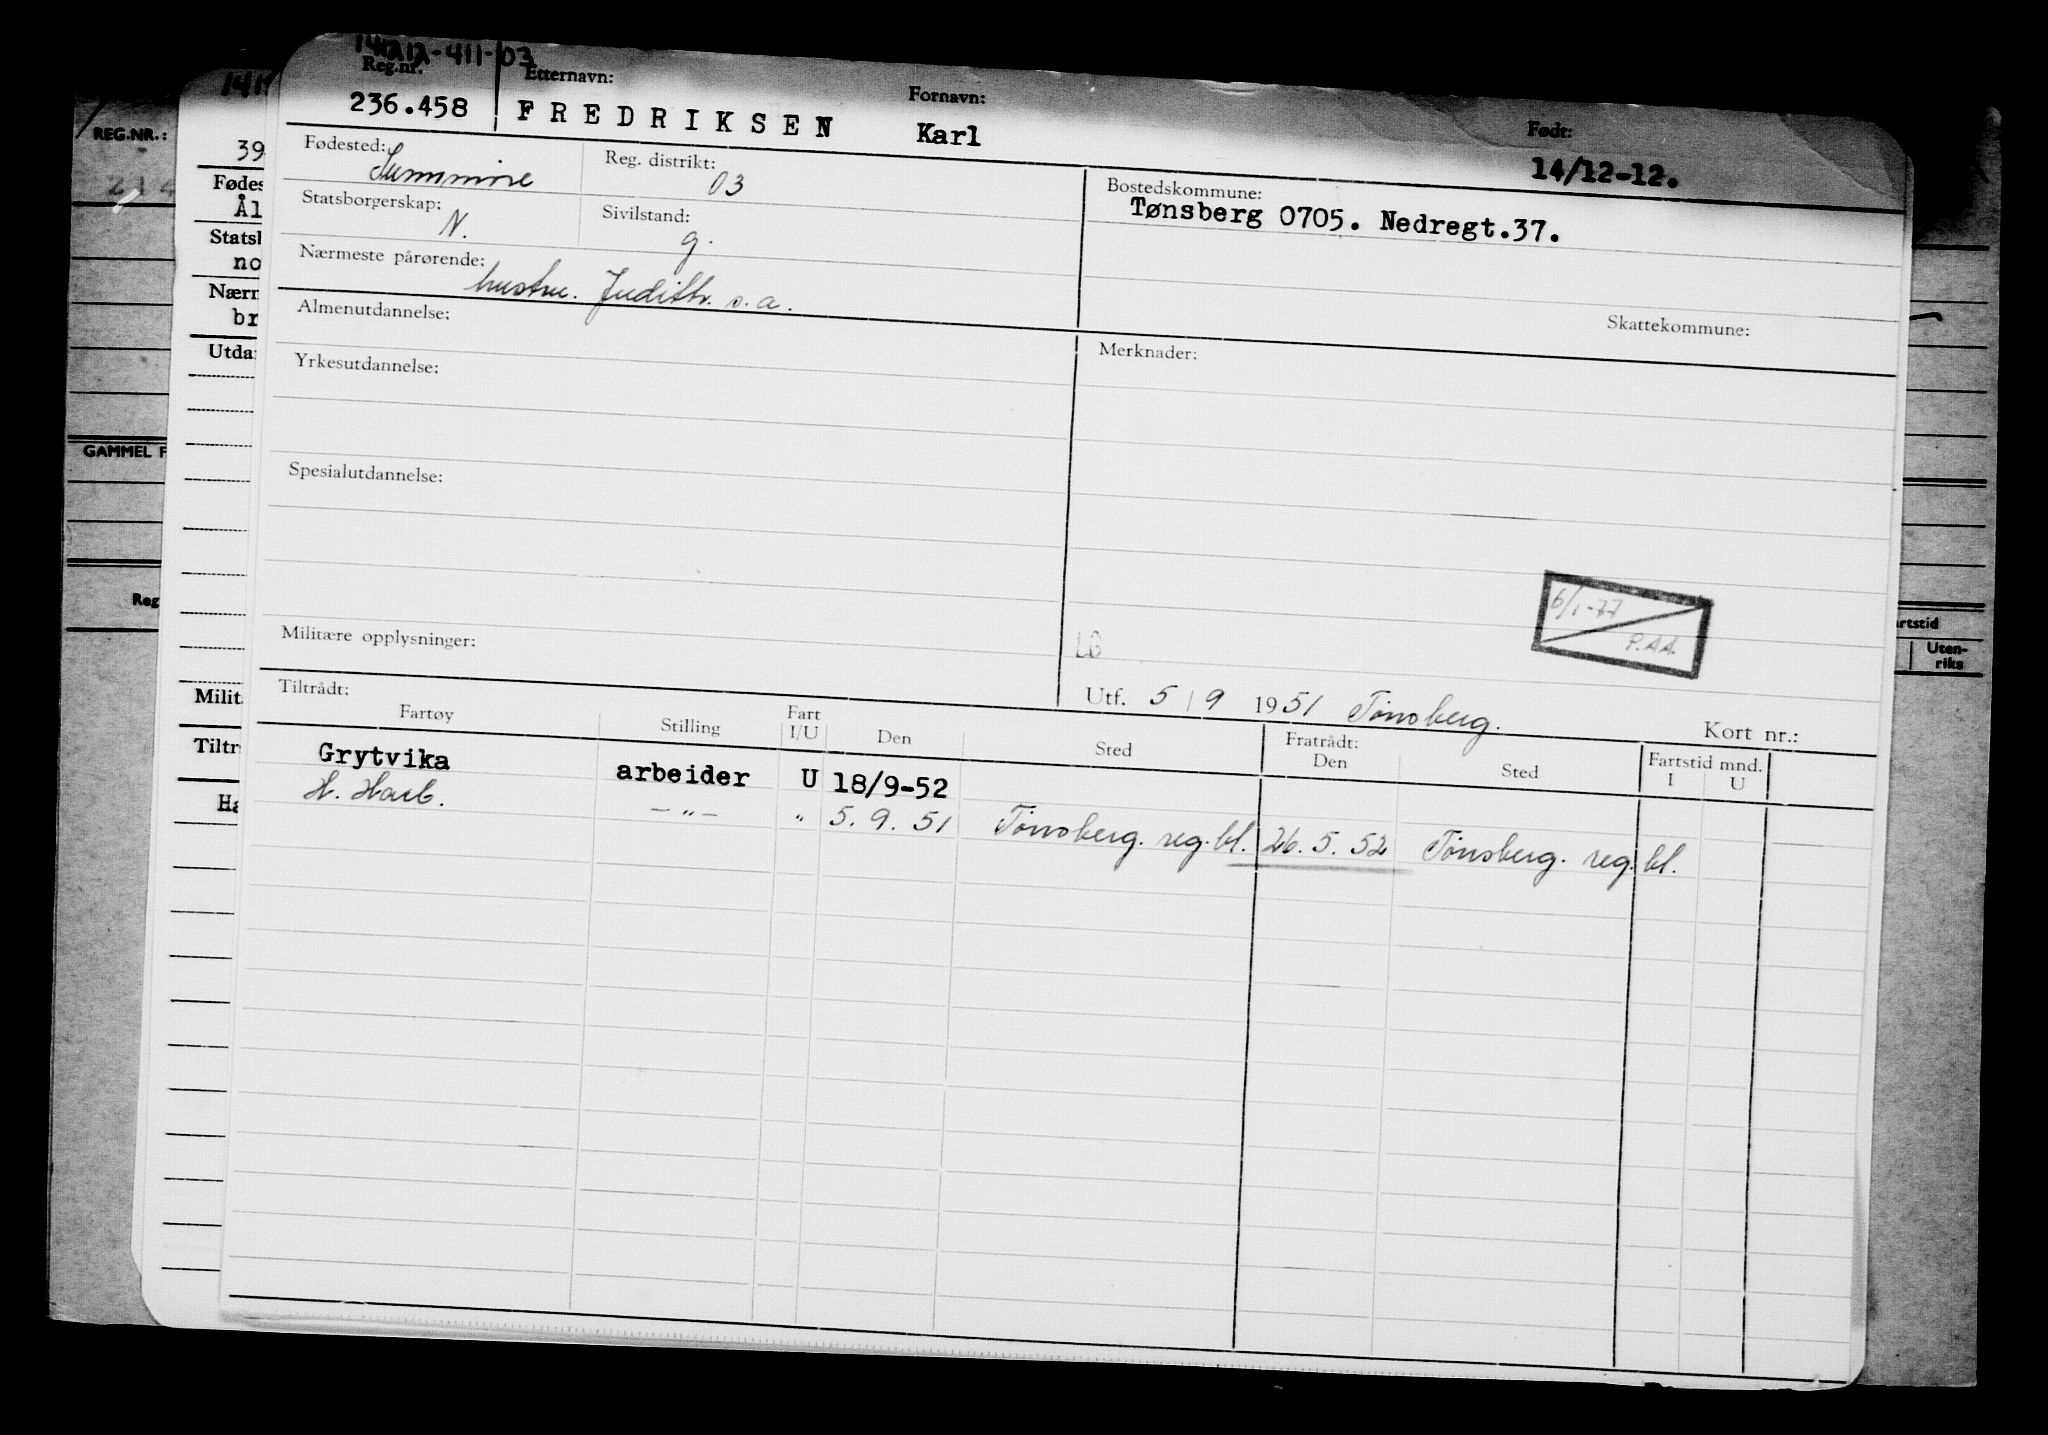 141212-411-03
Reg.nr. Etternavn: Fornavn: Født:
236.458 FREDRIKSEN Karl 14/12-12.
Fødested: Reg. distrikt: Bostedskommune:
03 Tønsberg 0705. Nedregt.37.
Statsborgerskap: Sivilstand:
N. g.
Nærmeste pårørende:
hustru. Judith. s.a.
Skattekommune:
Almenutdannelse: Merknader:
Yrkesutdannelse:
Spesialutdannelse:
6/1-77
P.AA.
Militære opplysninger: LG
Utf. 5/9 1951 Tønsberg. Kort nr.:
Tiltrådt: Fratrådt: Fartstid mnd.
Fartøy Stilling Fart I/U Den Sted Den Sted I U
Grytvika arbeider U 18/9-52
-"- " 5.9.51 Tønsberg. reg.bl. 26.5.52 Tønsberg. reg.bl.
REG.NR.:
214
GAMMEL F
Reg
1412
39
Fødes
Ål
Statsb
no
Nærm
br
Utda
Milit
Tiltr
Ha
artstid
Uten-
riks